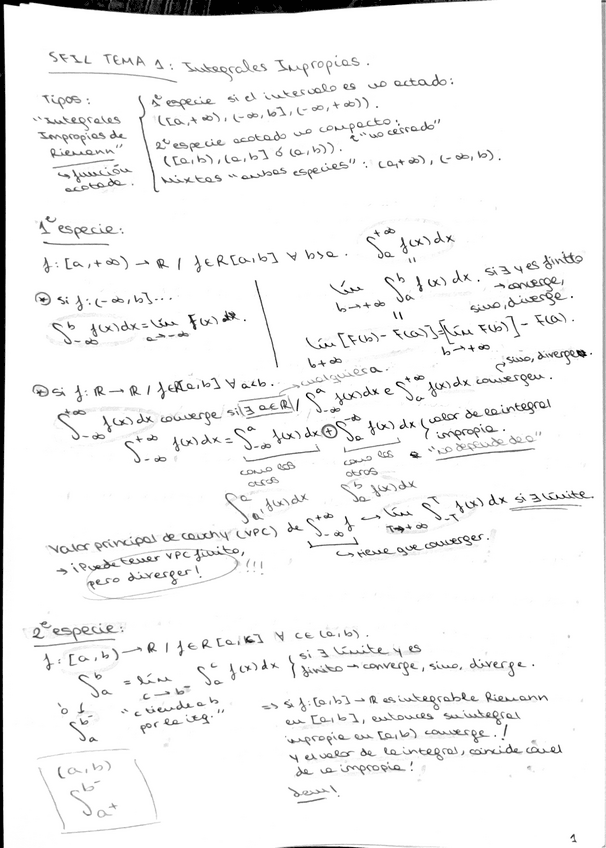 SFIL TEMA 1: Integrales Impropias.
Tipos:
"Integrales Impropias de Riemann"
↳ función acotada.
1ª especie si el intervalo es no actado:
([a,+∞), (-∞,b], (-∞,+∞)).
2ª especie acotado no compacto:
"no cerrado"
([a,b), (a,b] ó (a,b)).
Mixtas "ambas especies": (a,+∞), (-∞,b).
1ª especie:
f: [a,+∞) → ℝ / f∈R[a,b] ∀ b>a. ∫_a^{+∞} f(x)dx
=
lím_{b→+∞} ∫_a^b f(x)dx. si ∃ y es finito → converge, sino, diverge.
=
lím_{b→+∞} [F(b) - F(a)] = [lím_{b→+∞} F(b)] - F(a).
⊛ si f: (-∞,b] ...
∫_{-∞}^b f(x)dx = lím_{a→-∞} F(x)
⊛ si f: ℝ → ℝ / f∈R[a,b] ∀ a<b.
→ cualquiera.
∫_{-∞}^{+∞} f(x)dx converge si ∃ a∈ℝ / ∫_{-∞}^a f(x)dx e ∫_a^{+∞} f(x)dx convergen.
→ sino, diverge.
∫_{-∞}^{+∞} f(x)dx = ∫_{-∞}^a f(x)dx ⊕ ∫_a^{+∞} f(x)dx { valor de la integral impropia.
"no depende de a"
como los otros
como los otros
∫_{a'}^a f(x)dx ∫_a^b f(x)dx
Valor principal de cauchy (VPC) de ∫_{-∞}^{+∞} f ↔ lím_{T→+∞} ∫_{-T}^T f(x)dx si ∃ límite.
↳ tiene que converger.
→ ¡Puede tener VPC finito, pero diverger! !!!
2ª especie:
f: [a,b) → ℝ / f∈R[a,c] ∀ c∈(a,b).
∫_a^b = lím_{c→b⁻} ∫_a^c f(x)dx { si ∃ límite y es finito → converge, sino, diverge.
ó
∫_a^{b⁻}
"c tiende a b por la izq."
⇒ si f: [a,b] → ℝ es integrable Riemann
en [a,b], entonces su integral
impropia en [a,b) converge.!
y el valor de la integral, coincide con el
de la impropia!
dem!
(a,b)
∫_{a⁺}^{b⁻}
1